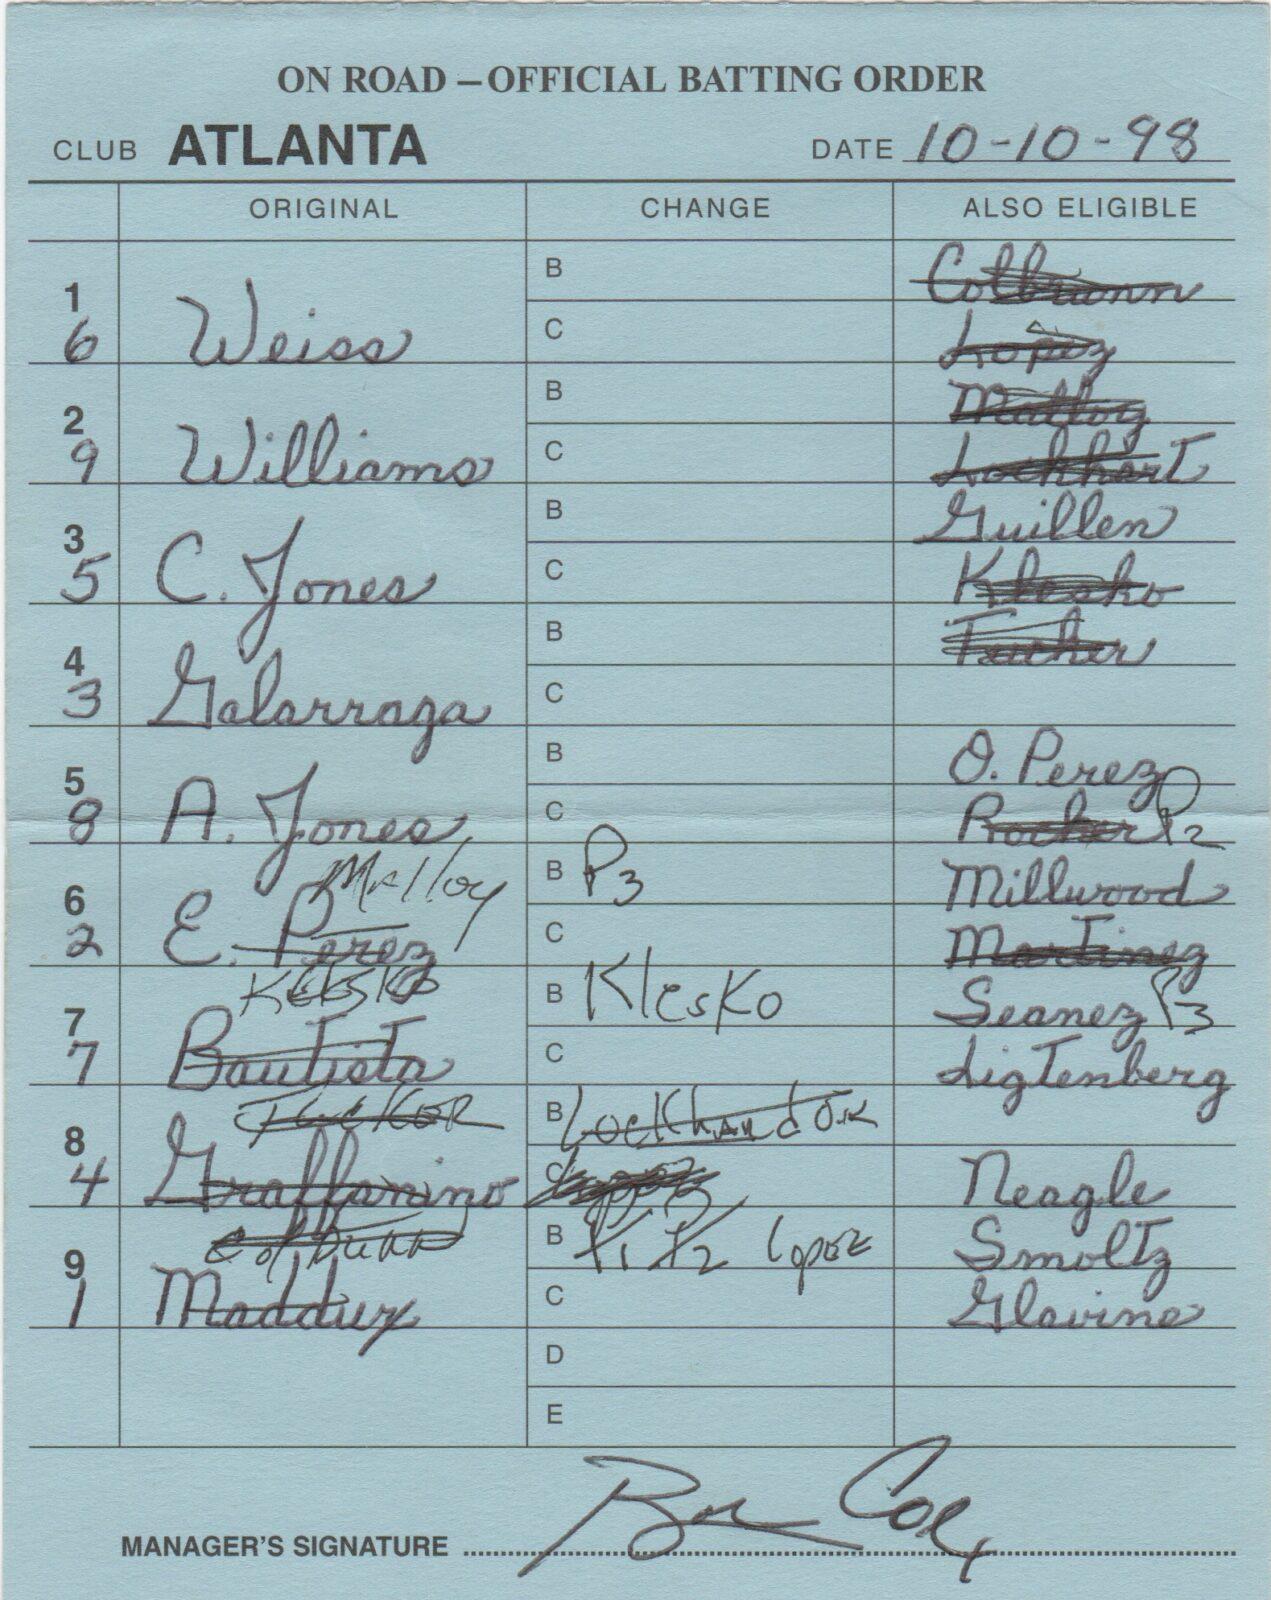 ON ROAD – OFFICIAL BATTING ORDER
CLUB ATLANTA DATE 10-10-98
ORIGINAL CHANGE ALSO ELIGIBLE
1 6 Weiss B C Colbrunn
Lopez
2 9 Williams B C Malloy
Lockhart
3 5 C. Jones B C Guillen
Klesko
4 3 Galarraga B C Tucker
5 8 A. Jones B C O. Perez
Rocker P2
Malloy
6 2 E. Perez B P3 C Millwood
Martinez
Klesko
7 7 Bautista B Klesko C Seanez P3
Ligtenberg
Tucker
8 4 Graffanino B Lockhart C Lopez
Neagle
Colbrunn
9 1 Maddux B P1 P2 Lopez C Smoltz
Glavine
D
E
MANAGER'S SIGNATURE Bob Cox